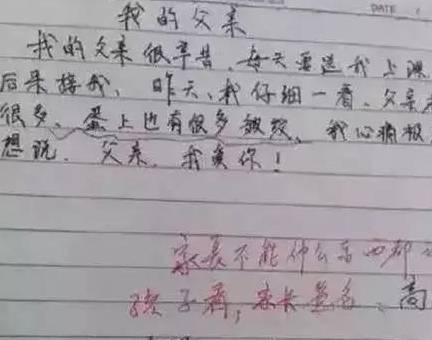 DATE
我的父亲
我的父亲很辛苦、每天要送我上课
后来接我、昨天、我仔细一看、父亲
很多、蛋上也有很多皱纹、我心痛极
想说、父亲、我爱你!
家长不能什么东西都
孩子看，家长签名、高